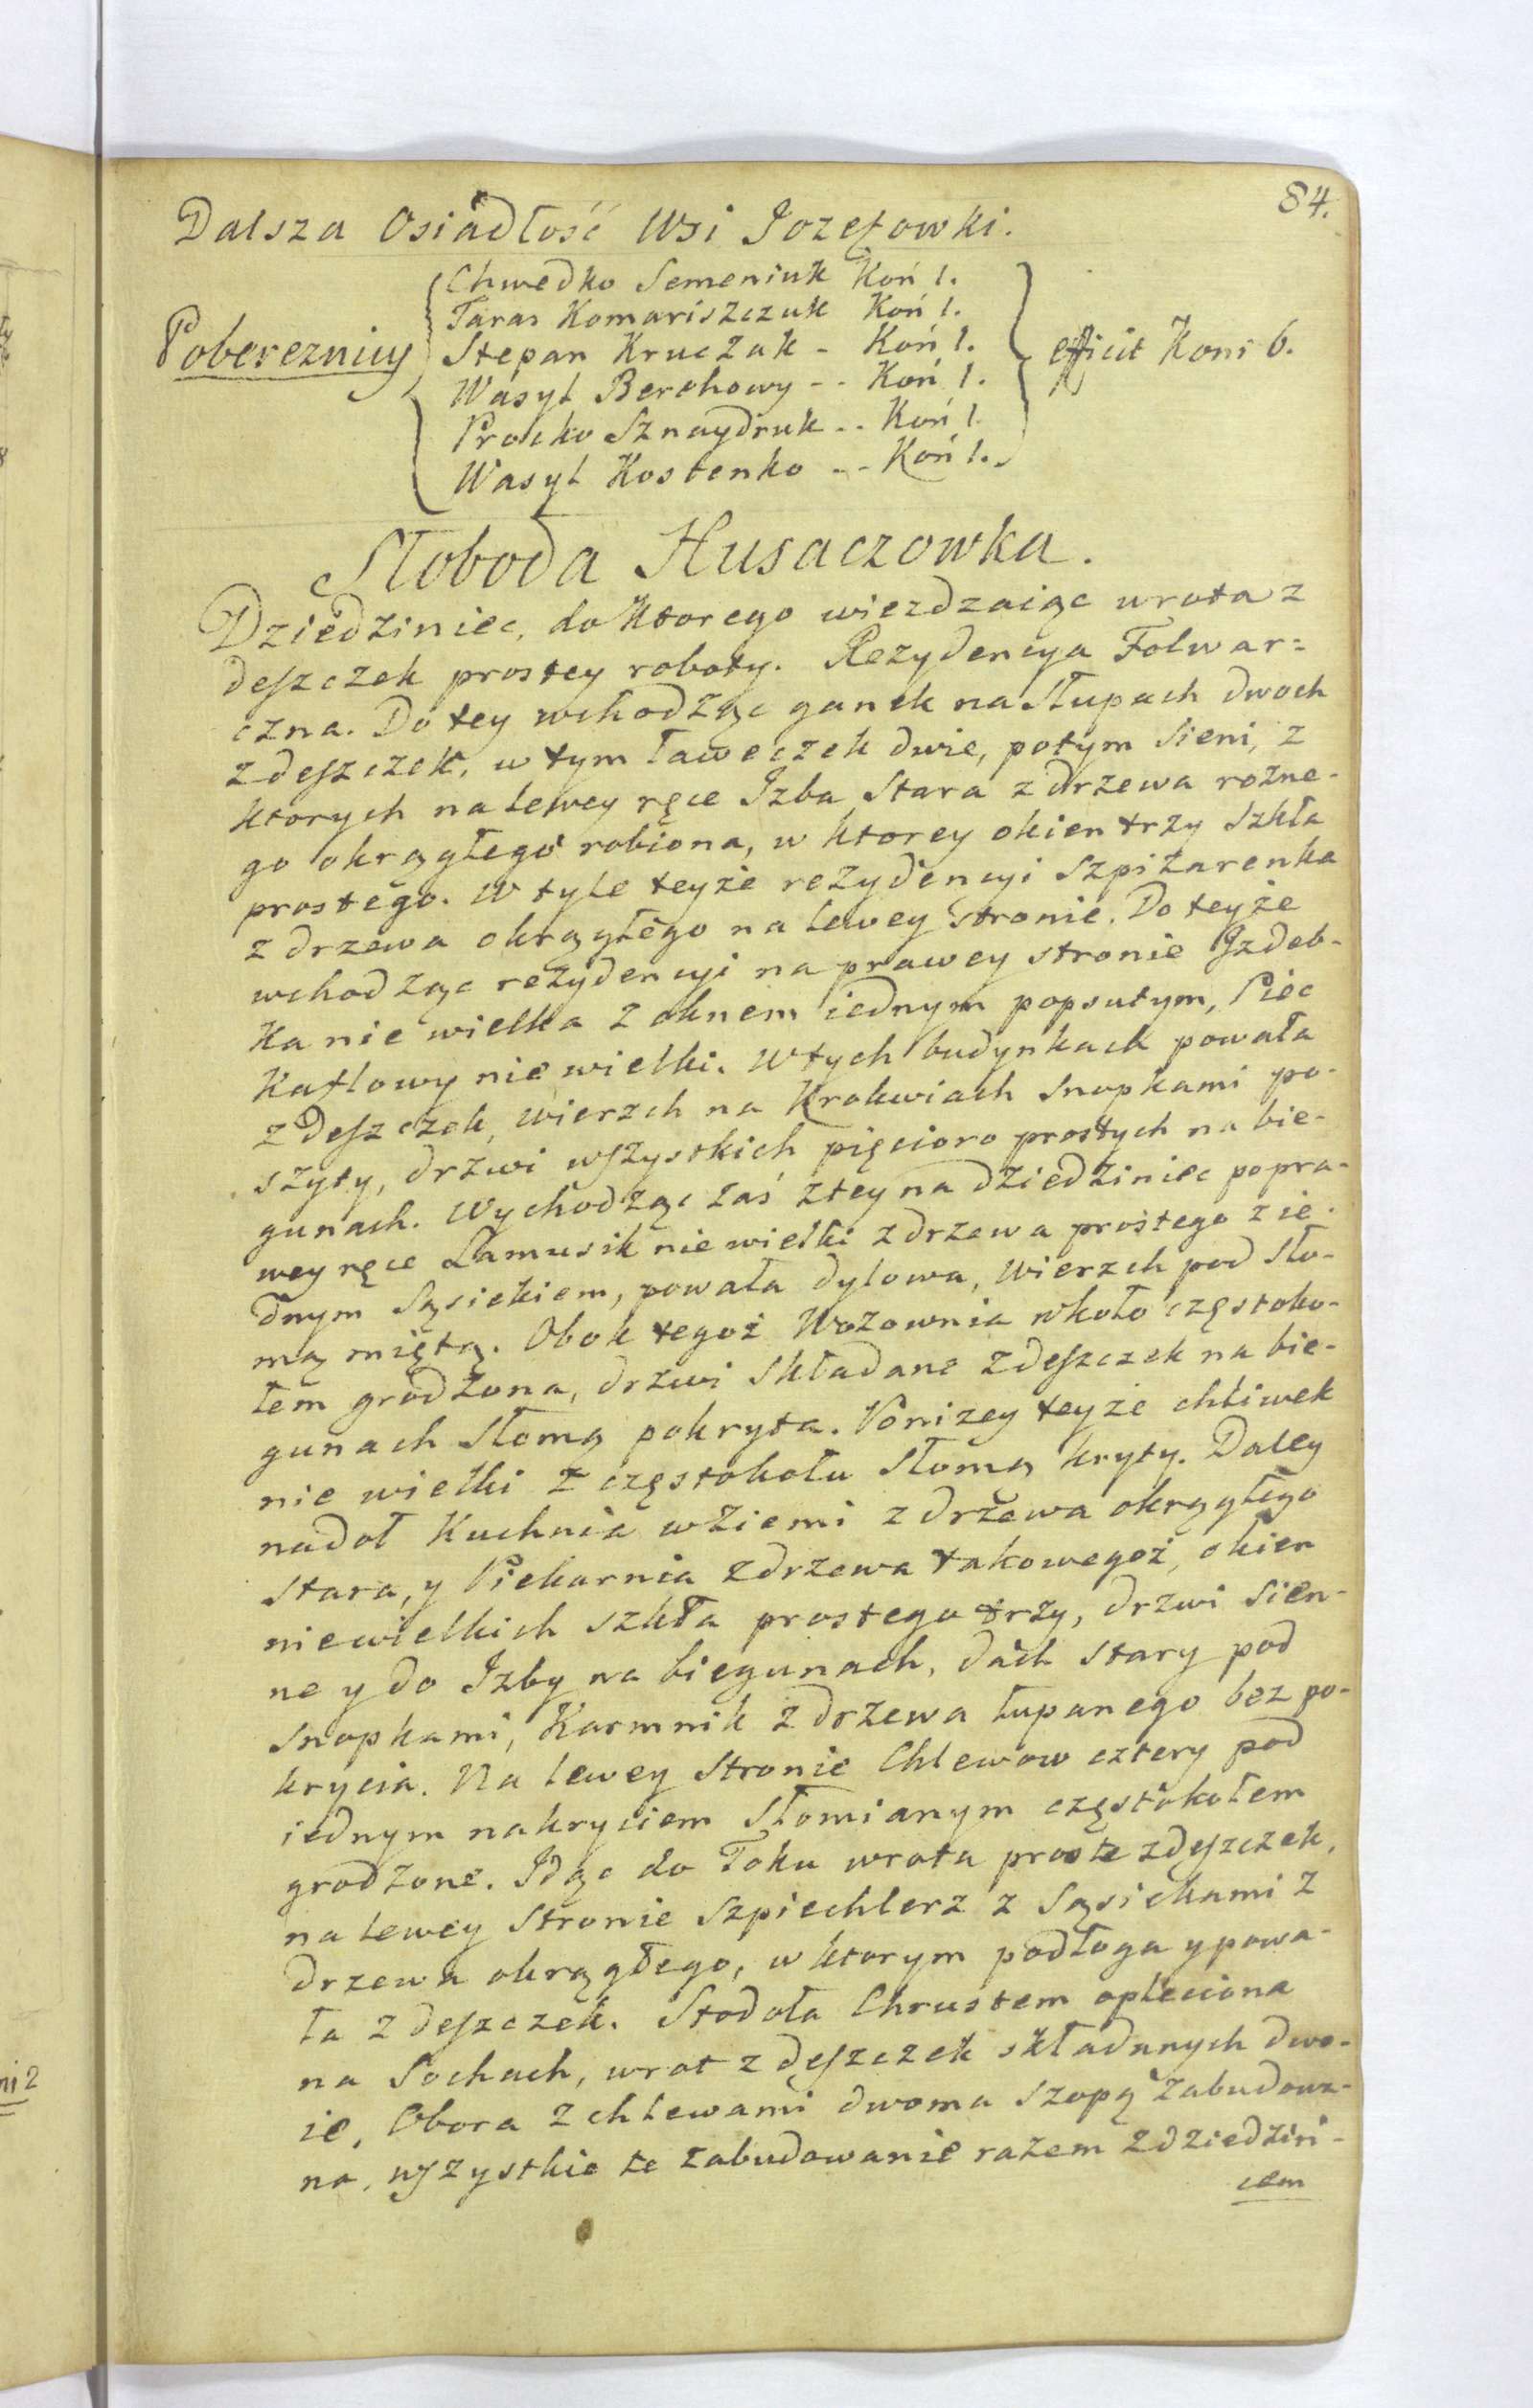 84.
Dalsza Osiadłość Wsi Jozefowki.
Pobereznicy
Chwedko Semeniuk Koń 1.
Taras Komariszczuk Koń 1.
Stepan Kruczak - Koń 1.
Wasyl Berehowy -- Koń 1.
Procko Sznaydruk -- Koń 1.
Wasyl Kostenko -- Koń 1.
efficit Koni 6.
Słoboda Husaczowka.
Dziedziniec, do Ktorego wiezdzaiąc wrota z
deszczek prostey roboty. Rezydencya Folwar=
czna. Do tey wchodząc ganek na Słupach dwoch
z deszczek, w tym ławeczek dwie, potym Sieni, z
ktorych na lewey ręce Izba Stara z drzewa rożne-
go okrągłego robiona, w ktorey okien trzy Szkła
prostego. W tyle teyże rezydencyi Szpiżarenka
z drzewa okrągłego na lewey stronie. Do teyże
wchodząc rezydencyi na prawey stronie Izdeb-
Ka nie wielka z oknem iednym popsutym, Piec
Kaflowy nie wielki. W tych budynkach powała
z Deszczek, wierzch na Krokwiach Snopkami po-
szyty, drzwi wszystkich pięcioro prostych na bie-
gunach. Wychodząc zaś z tey na dziedziniec po pra-
wey ręce Lamusik nie wielki z drzewa prostego z ie-
dnym Sąsiekiem, powała dylowa, Wierzch pod Sło-
mą miętą. Obok tegoż Wozownia wkoło częstoko-
łem grodzona, drzwi Składane z deszczek na bie-
gunach Słomą pokryta. Ponizey teyże chliwek
nie wielki z częstokołu Słomą kryty. Daley
nadoł Kuchnia w Ziemi z drzewa okrągłego
stara, y Piekarnia z drzewa takowegoż, okien
niewielkich szkła prostego trzy, drzwi Sien-
ne y do Izby na biegunach, dach stary pod
Snopkami, Karmnik z drzewa łupanego bez po-
krycia. Na lewey Stronie Chlewow cztery pod
iednym nakryciem Słomianym częstokołem
grodzone. Idąc do Toku wrota proste z deszczek,
na lewey Stronie Szpiechlerz z Sąsiekami z
drzewa okrągłego, w ktorym podłoga y powa-
ła z deszczek. Stodoła Chrustem opleciona
na Sochach, wrot z deszczek składanych dwo-
ie, Obora z chlewami dwoma Szopą zabudowa-
na, wszystkie te zabudowanie razem z dziedziń-
cem